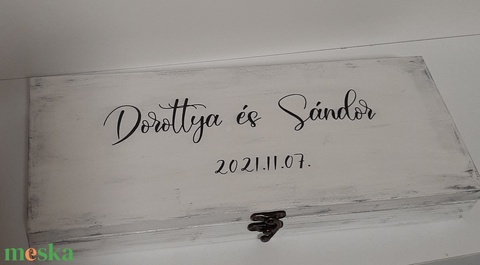 Dorottya és Sándor
2021.11.07.
meska